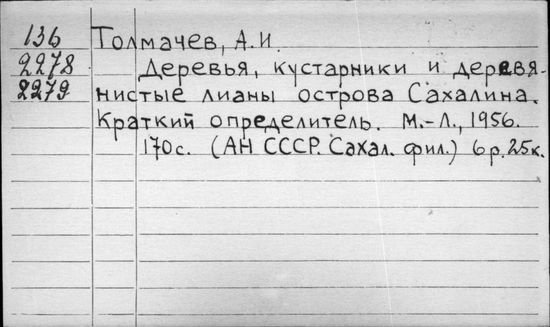 136 Толмачев, А.И.
2278 Деревья, кустарники и деревя-
2279 нистые лианы острова Сахалина.
Краткий определитель. М.-Л., 1956.
170с. (АН СССР. Сахал. фил.) 6р.25к.